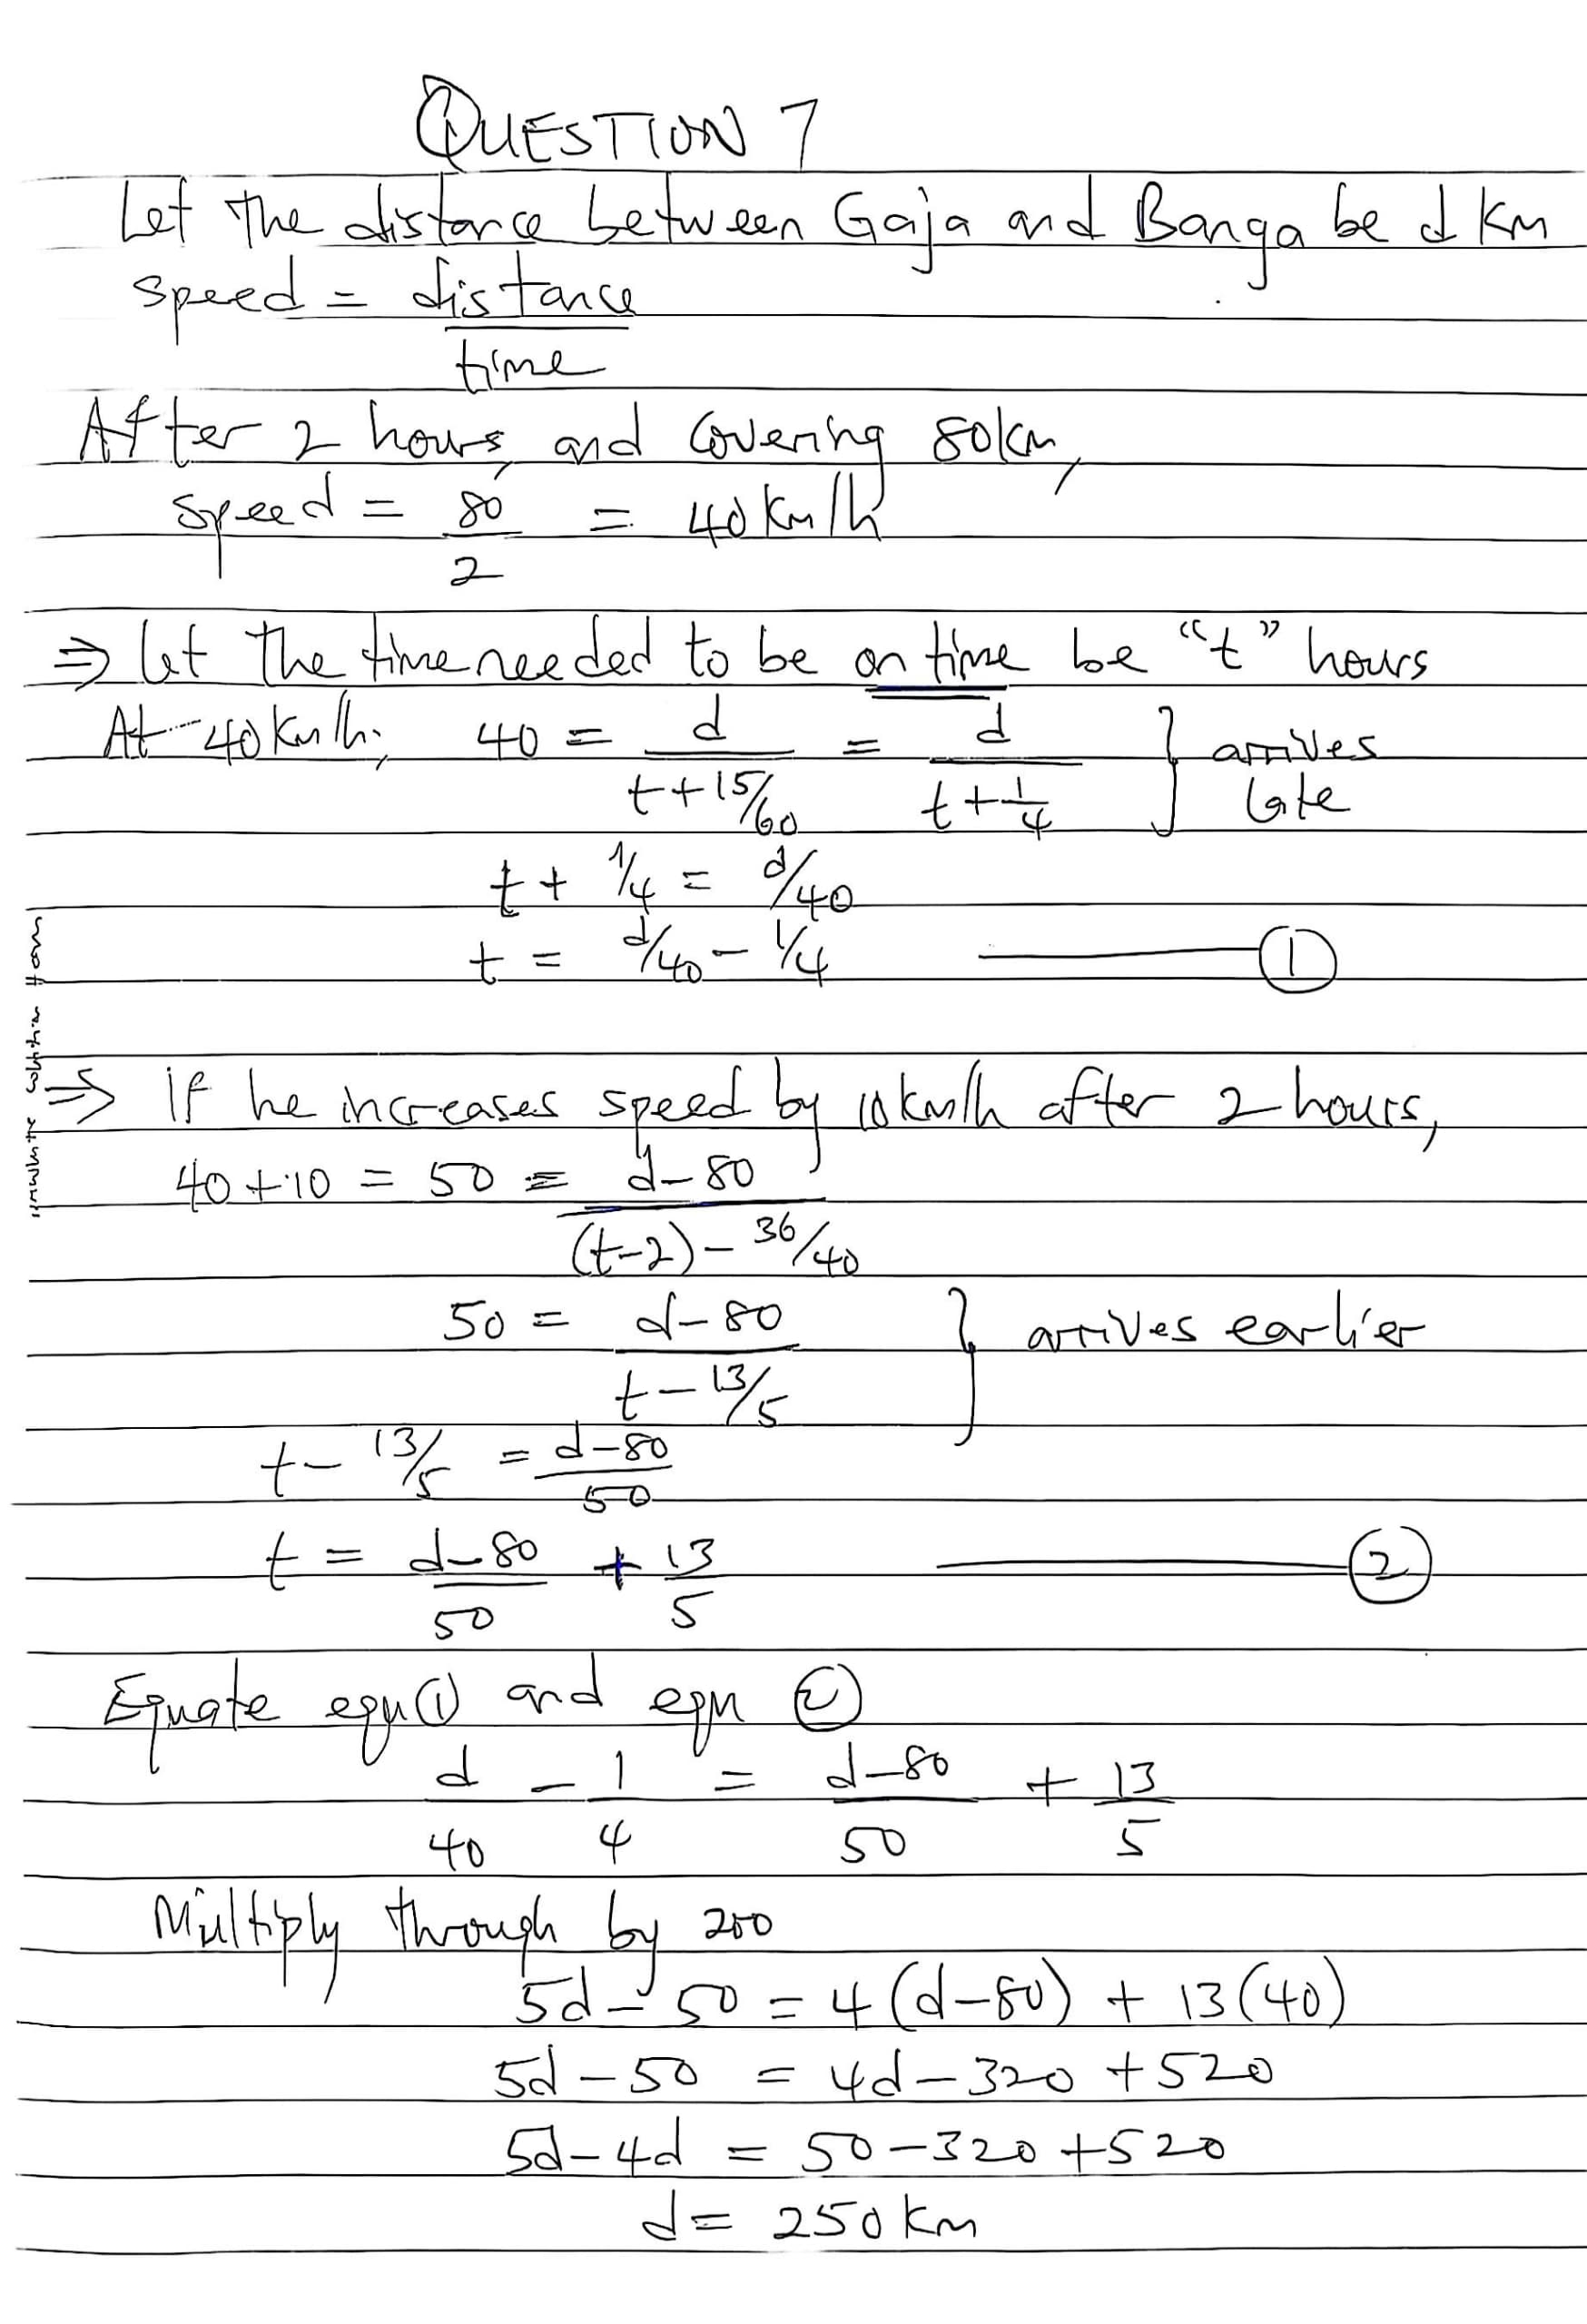 QUESTION 7
Let the distance between Gaja and Banga be d km
speed = distance
time
After 2 hours, and covering 80km,
speed = 80/2 = 40km/h
⇒ let the time needed to be on time be "t" hours
At 40km/h; 40 = d/(t+15/60) = d/(t+1/4) } arrives late
t + 1/4 = d/40
t = d/40 - 1/4 ——— ①
⇒ if he increases speed by 10km/h after 2 hours,
40+10 = 50 = (d-80)/((t-2)- 36/40)
50 = (d-80)/(t-13/5) } arrives earlier
t - 13/5 = (d-80)/50
t = (d-80)/50 + 13/5 ——— ②
Equate equ ① and eqn ②
d/40 - 1/4 = (d-80)/50 + 13/5
Multiply through by 200
5d - 50 = 4(d-80) + 13(40)
5d - 50 = 4d - 320 + 520
5d - 4d = 50 - 320 + 520
d = 250 km